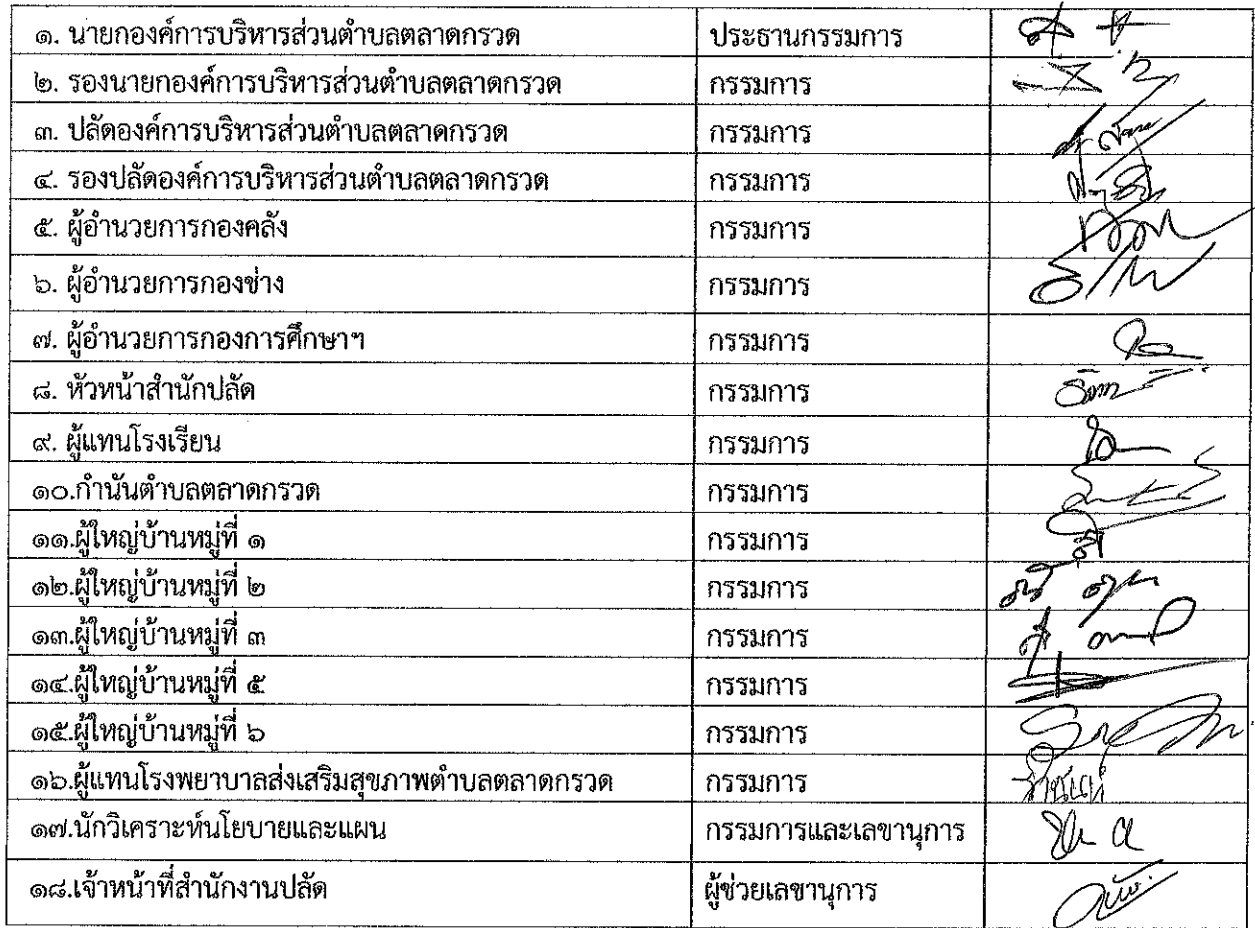 ๑. นายกองค์การบริหารส่วนตำบลตลาดกรวด ประธานกรรมการ
๒. รองนายกองค์การบริหารส่วนตำบลตลาดกรวด กรรมการ
๓. ปลัดองค์การบริหารส่วนตำบลตลาดกรวด กรรมการ
๔. รองปลัดองค์การบริหารส่วนตำบลตลาดกรวด กรรมการ
๕. ผู้อำนวยการกองคลัง กรรมการ
๖. ผู้อำนวยการกองช่าง กรรมการ
๗. ผู้อำนวยการกองการศึกษาฯ กรรมการ
๘. หัวหน้าสำนักปลัด กรรมการ
๙. ผู้แทนโรงเรียน กรรมการ
๑๐.กำนันตำบลตลาดกรวด กรรมการ
๑๑.ผู้ใหญ่บ้านหมู่ที่ ๑ กรรมการ
๑๒.ผู้ใหญ่บ้านหมู่ที่ ๒ กรรมการ
๑๓.ผู้ใหญ่บ้านหมู่ที่ ๓ กรรมการ
๑๔.ผู้ใหญ่บ้านหมู่ที่ ๕ กรรมการ
๑๕.ผู้ใหญ่บ้านหมู่ที่ ๖ กรรมการ
๑๖.ผู้แทนโรงพยาบาลส่งเสริมสุขภาพตำบลตลาดกรวด กรรมการ
๑๗.นักวิเคราะห์นโยบายและแผน กรรมการและเลขานุการ
๑๘.เจ้าหน้าที่สำนักงานปลัด ผู้ช่วยเลขานุการ